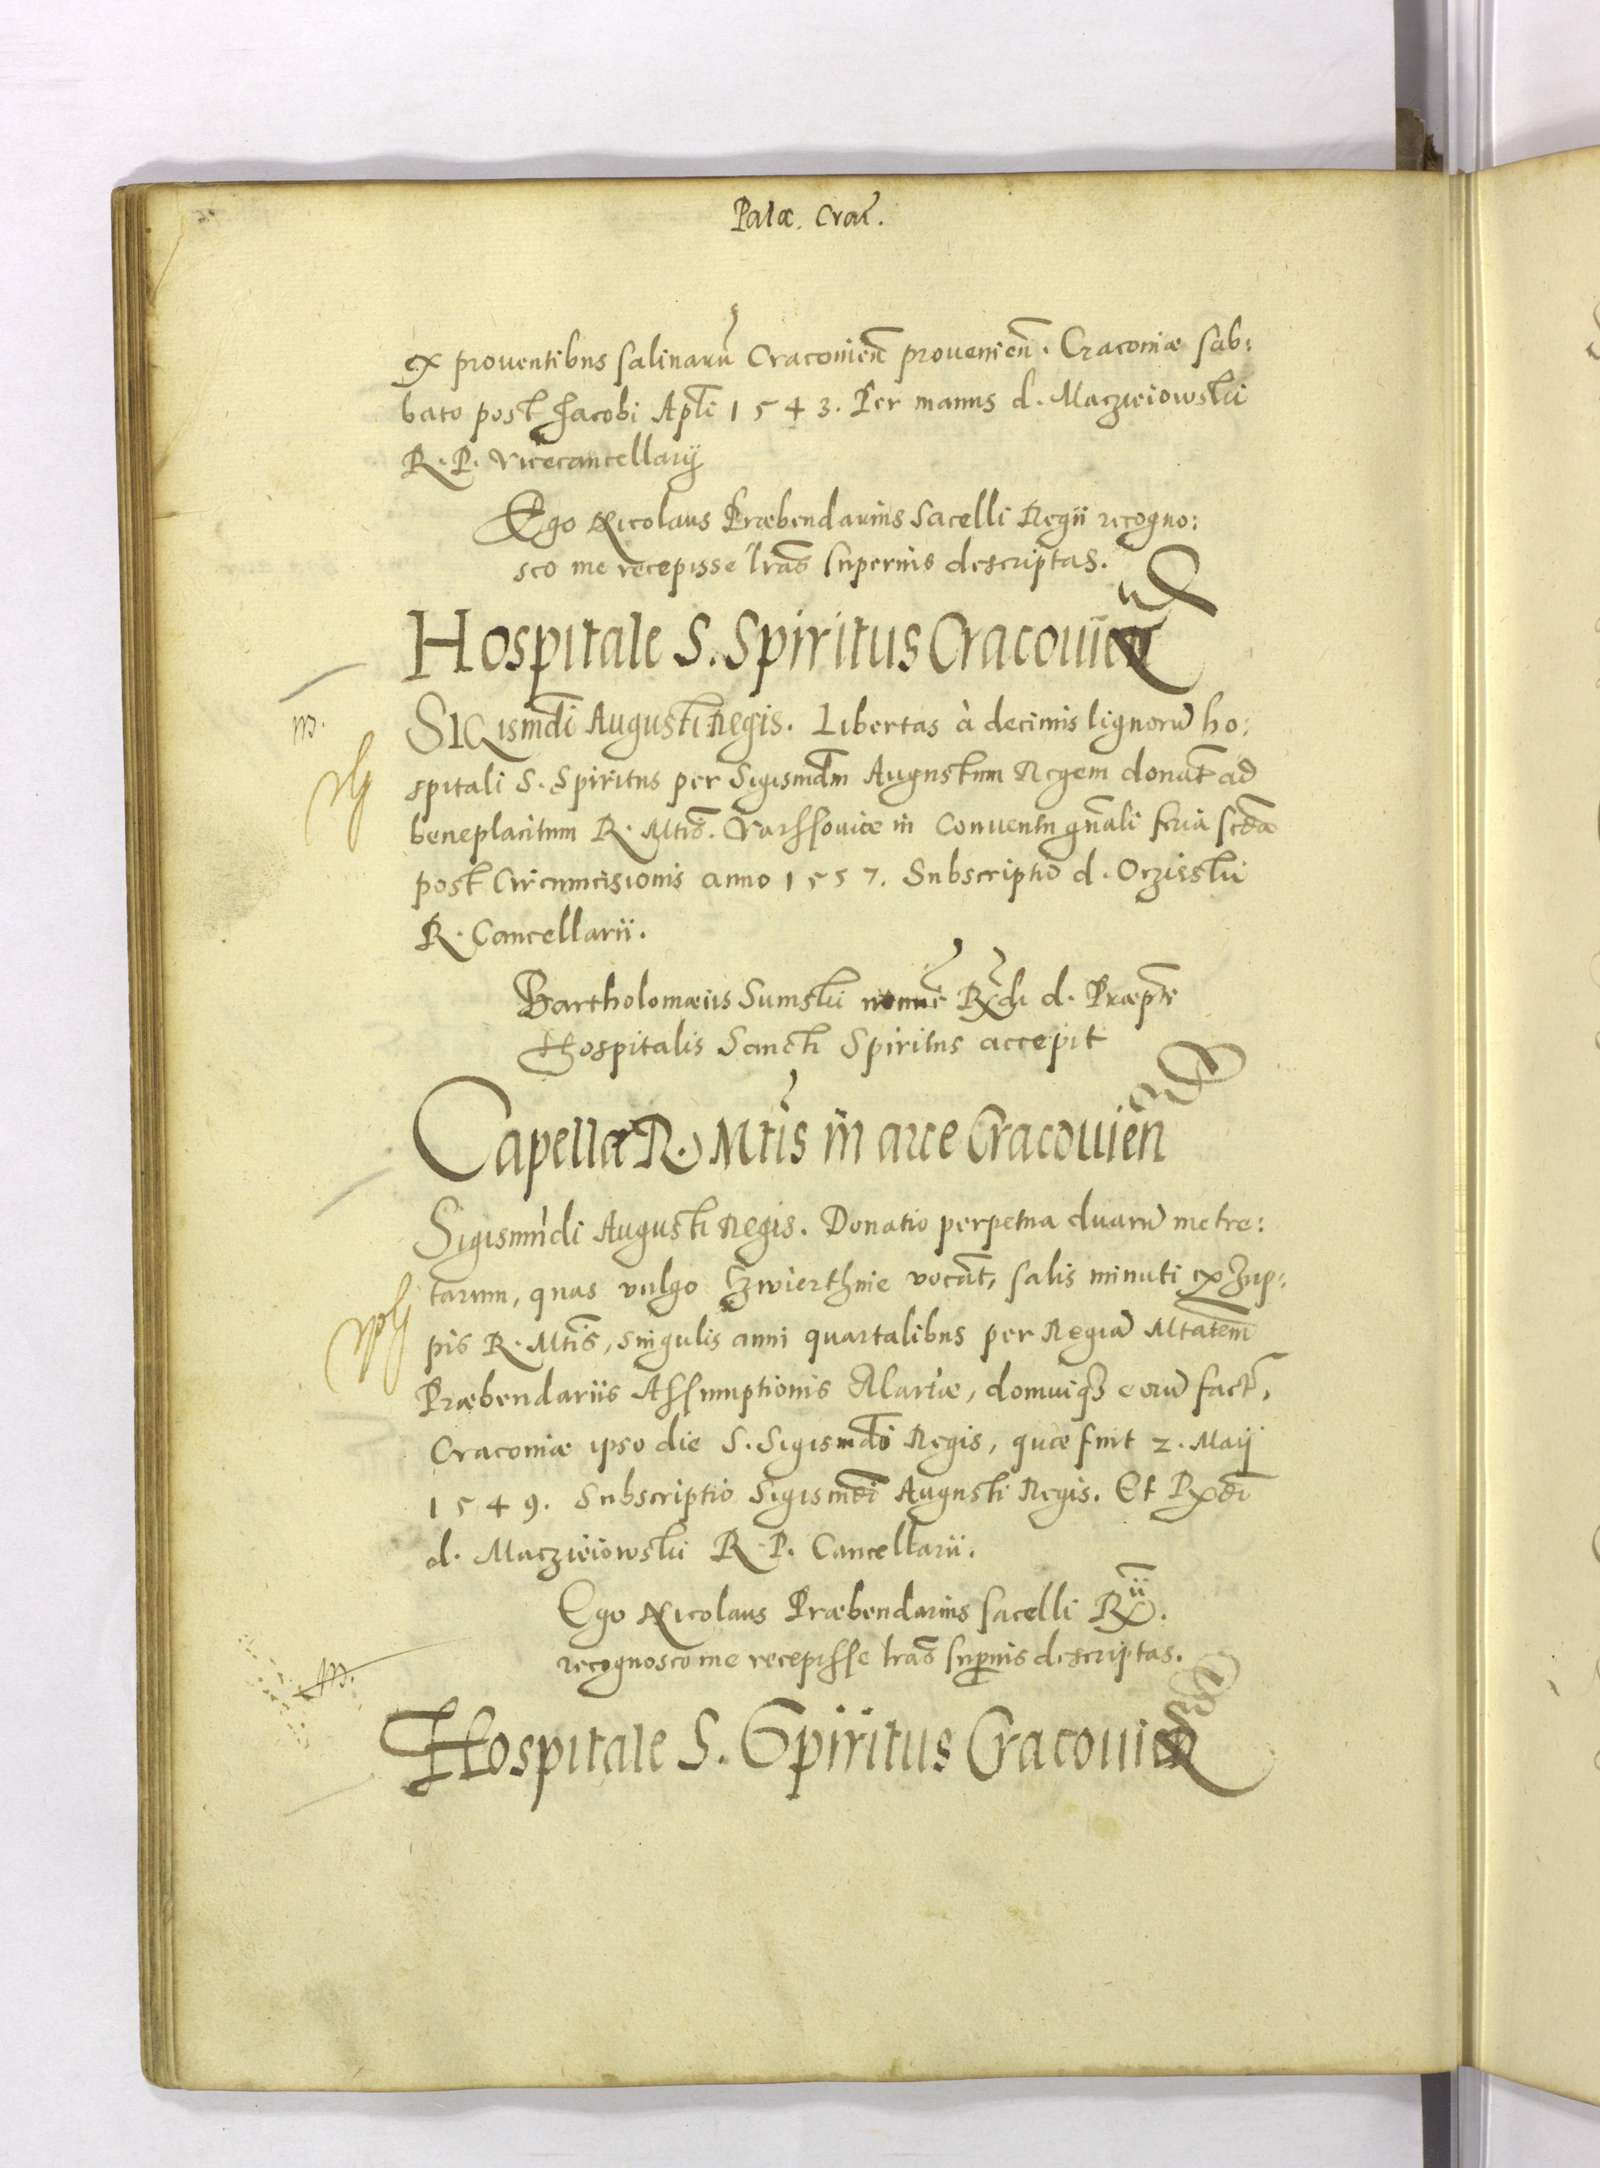 Pala. Crac̄.
ex prouentibus salinarū Cracouien̄ prouenien̄. Cracouiæ sab:
bato post Jacobi Apl̄i 1543. Per manus d. Maczieiowskii
R. P. Vicecancellarij
Ego Nicolaus Præbendarius Sacelli Regii recogno:
sco me recepisse lr̄as superius descriptas.
Hospitale S. Spiritus Cracouien̄
SIGismūdi Augusti Regis. Libertas à decimis lignorū ho:
spitali S. Spiritus per Sigismūdm Augustum Regem donat̄ ad
beneplacitum R. Mtis̄. Varssouiæ in Conuentu gn̄ali feria scd̄a
post Circumcisionis anno 1557. Subscriptio d. Oczieskii
R. Cancellarii.
Bartholomæus Sumskii nomīe Rx̄di d. Præpt̄i
Hospitalis Sancti Spiritus accepit
Capellæ R. Mtis̄ in arce Cracouien̄
Sigismūdi Augusti Regis. Donatio perpetua duarū metre:
tarum, quas vulgo Czwierthnie vocāt, salis minuti ex Zup:
pis R. Mtis̄, singulis anni quartalibus per Regiā Mtatem̄
Præbendariis Assumptionis Mariæ, domuiqz eorū fact̄,
Cracouiæ ipso die S. Sigismūdi Regis, quæ fuit 2. Maij
1549. Subscriptio Sigismūdi Augusti Regis. Et Rx̄di
d. Maczieiowskii R. P. Cancellarii.
Ego Nicolaus Præbendarius sacelli Rx̄ii.
recognosco me recepisse lr̄as supius descriptas.
Hospitale S. Spiritus Cracouien̄